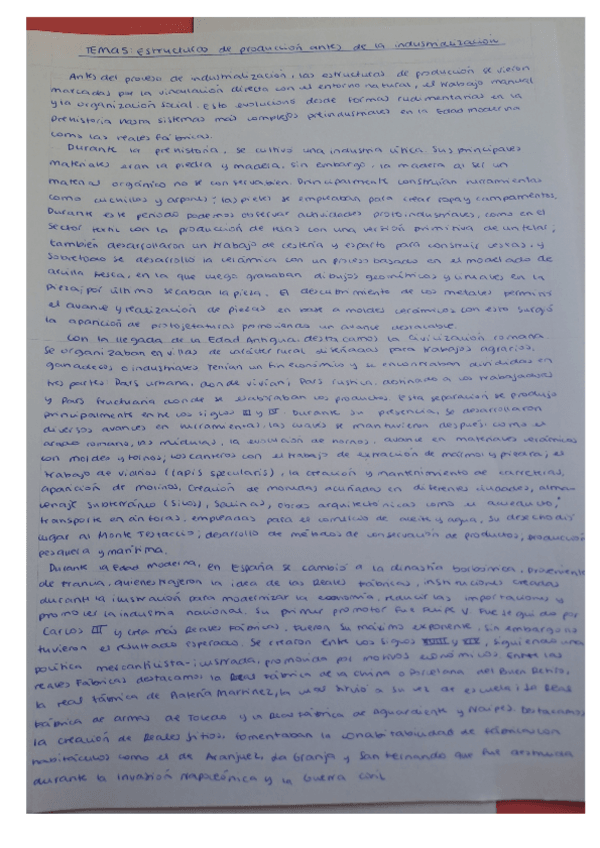 TEMA 5: Estructuras de producción antes de la industrialización
Antes del proceso de industrialización, las estructuras de producción se vieron
marcadas por la vinculación directa con el entorno natural, el trabajo manual
y la organización social. Esto evolucionó desde formas rudimentarias en la
Prehistoria hasta sistemas más complejos preindustriales en la Edad Moderna
como las Reales Fábricas.
Durante la prehistoria, se cultivó una industria lítica. Sus principales
materiales eran la piedra y madera, sin embargo, la madera al ser un
material orgánico no se conserva bien. Principalmente construían herramientas
como cuchillos y arpones; las pieles se empleaban para crear ropa y campamentos.
Durante este periodo podemos observar actividades protoindustriales, como en el
sector textil con la producción de telas con una versión primitiva de un telar,
también desarrollaron un trabajo de cestería y esparto para construir cestas, y
sobretodo se desarrolló la cerámica con un proceso basado en el modelado de
arcilla fresca, en la que luego grababan dibujos geométricos y lineales en la
pieza; por último secaban la pieza. El descubrimiento de los metales permitió
el avance y realización de piezas en base a moldes cerámicos con esto surgió
la aparición de protojefaturas promoviendo un avance destacable.
Con la llegada de la Edad Antigua, destacamos la civilización romana.
Se organizaban en villas de carácter rural diseñadas para trabajos agrarios,
ganaderos o industriales tenían un fin económico y se encontraban divididas en
tres partes: Pars urbana, donde vivían; Pars rustica, destinado a los trabajadores
y Pars fructuaria donde se elaboraban los productos. Esta separación se produjo
principalmente entre los siglos III y IV. Durante su presencia, se desarrollaron
diversos avances en herramientas, las cuales se mantuvieron después: como el
arado romano, las médulas, la evolución de hornos, avance en materiales cerámicos
con moldes y tornos, los canteros con el trabajo de extracción de mármol y piedra, el
trabajo de vidrios (lapis specularis), la creación y mantenimiento de carreteras,
aparición de molinos, creación de monedas acuñadas en diferentes ciudades, alma-
cenaje subterráneo (silos), salinas, obras arquitectónicas como el acueducto,
transporte en ánforas, empleadas para el comercio de aceite y agua, su desecho dió
lugar al Monte Testaccio, desarrollo de métodos de conservación de productos, producción
pesquera y marítima.
Durante la Edad Moderna, en España se cambió a la dinastía borbónica, proveniente
de Francia, quienes trajeron la idea de las Reales Fábricas, instituciones creadas
durante la ilustración para modernizar la economía, reducir las importaciones y
promover la industria nacional. Su primer promotor fue Felipe V. Fue seguido por
Carlos III y crea más Reales Fábricas, fueron su máximo exponente, sin embargo no
tuvieron el resultado esperado. Se crearon entre los siglos XVIII y XIX, siguiendo una
política mercantilista-ilustrada, promovida por motivos económicos. Entre las
reales fábricas destacamos: la Real Fábrica de la China o Porcelana del Buen Retiro,
la real fábrica de Platería Martínez, la cual sirvió a su vez de escuela; la Real
Fábrica de armas de Toledo y la Real Fábrica de Aguardiente y Naipes. Destacamos
la creación de Reales Sitios, fomentaban la
habitáculos como el de Aranjuez, La Granja y San Fernando que fue destruida
durante la invasión napoleónica y la Guerra civil.